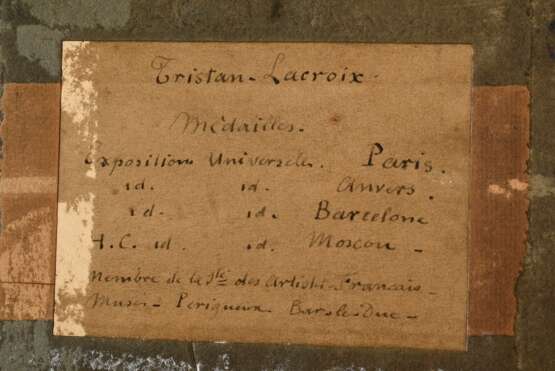 Tristan-Lacroix.
Médailles.
Expositions Universelles. Paris.
id. id. Anvers.
id. id. Barcelone
H.C. id. id. Moscou -
Membre de la Sté des Artistes Français -
Musées - Perigueux Bar-le-Duc -